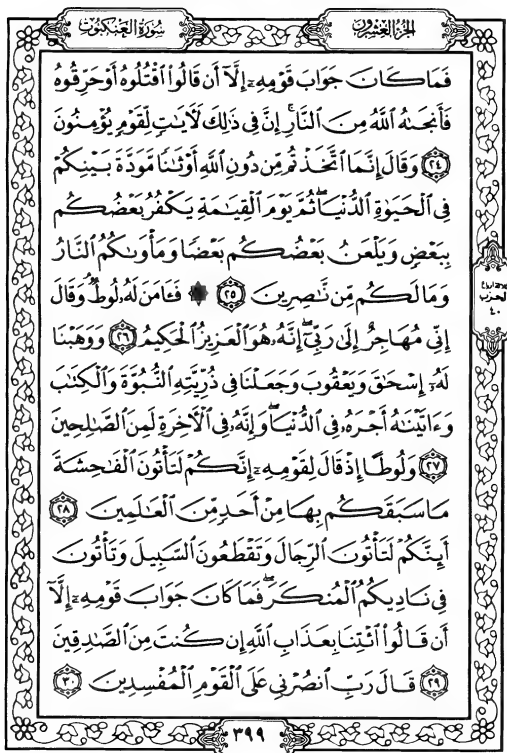 الجزء العشرون
سورة العنكبوت
فَمَا كَانَ جَوَابَ قَوْمِهِۦٓ إِلَّآ أَن قَالُوا۟ ٱقْتُلُوهُ أَوْ حَرِّقُوهُ
فَأَنجَىٰهُ ٱللَّهُ مِنَ ٱلنَّارِ ۚ إِنَّ فِى ذَٰلِكَ لَءَايَٰتٍ لِّقَوْمٍ يُؤْمِنُونَ
٢٤ وَقَالَ إِنَّمَا ٱتَّخَذْتُم مِّن دُونِ ٱللَّهِ أَوْثَٰنًا مَّوَدَّةَ بَيْنِكُمْ
فِى ٱلْحَيَوٰةِ ٱلدُّنْيَا ۖ ثُمَّ يَوْمَ ٱلْقِيَٰمَةِ يَكْفُرُ بَعْضُكُم
بِبَعْضٍ وَيَلْعَنُ بَعْضُكُم بَعْضًا وَمَأْوَىٰكُمُ ٱلنَّارُ
وَمَا لَكُم مِّن نَّٰصِرِينَ ٢٥ ۞ فَـَٔامَنَ لَهُۥ لُوطٌ ۘ وَقَالَ
إِنِّى مُهَاجِرٌ إِلَىٰ رَبِّىٓ ۖ إِنَّهُۥ هُوَ ٱلْعَزِيزُ ٱلْحَكِيمُ ٢٦ وَوَهَبْنَا
لَهُۥٓ إِسْحَٰقَ وَيَعْقُوبَ وَجَعَلْنَا فِى ذُرِّيَّتِهِ ٱلنُّبُوَّةَ وَٱلْكِتَٰبَ
وَءَاتَيْنَٰهُ أَجْرَهُۥ فِى ٱلدُّنْيَا ۖ وَإِنَّهُۥ فِى ٱلْءَاخِرَةِ لَمِنَ ٱلصَّٰلِحِينَ
٢٧ وَلُوطًا إِذْ قَالَ لِقَوْمِهِۦٓ إِنَّكُمْ لَتَأْتُونَ ٱلْفَٰحِشَةَ
مَا سَبَقَكُم بِهَا مِنْ أَحَدٍ مِّنَ ٱلْعَٰلَمِينَ ٢٨
أَئِنَّكُمْ لَتَأْتُونَ ٱلرِّجَالَ وَتَقْطَعُونَ ٱلسَّبِيلَ وَتَأْتُونَ
فِى نَادِيكُمُ ٱلْمُنكَرَ ۖ فَمَا كَانَ جَوَابَ قَوْمِهِۦٓ إِلَّآ
أَن قَالُوا۟ ٱئْتِنَا بِعَذَابِ ٱللَّهِ إِن كُنتَ مِنَ ٱلصَّٰدِقِينَ
٢٩ قَالَ رَبِّ ٱنصُرْنِى عَلَى ٱلْقَوْمِ ٱلْمُفْسِدِينَ ٣٠
الحزب
٤٠
٣٩٩